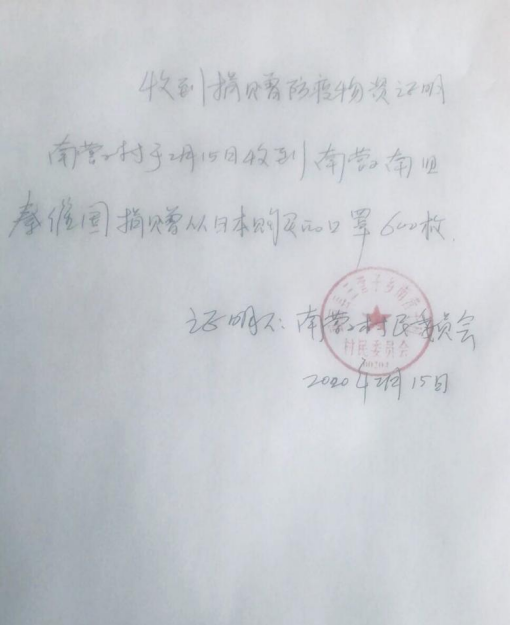 收到捐赠防疫物资证明
南营子村于2月15日收到南营子南组
秦维国捐赠从日本购买的口罩600枚.
证明人：南营子村民委员会
村民委员会
2020年2月15日